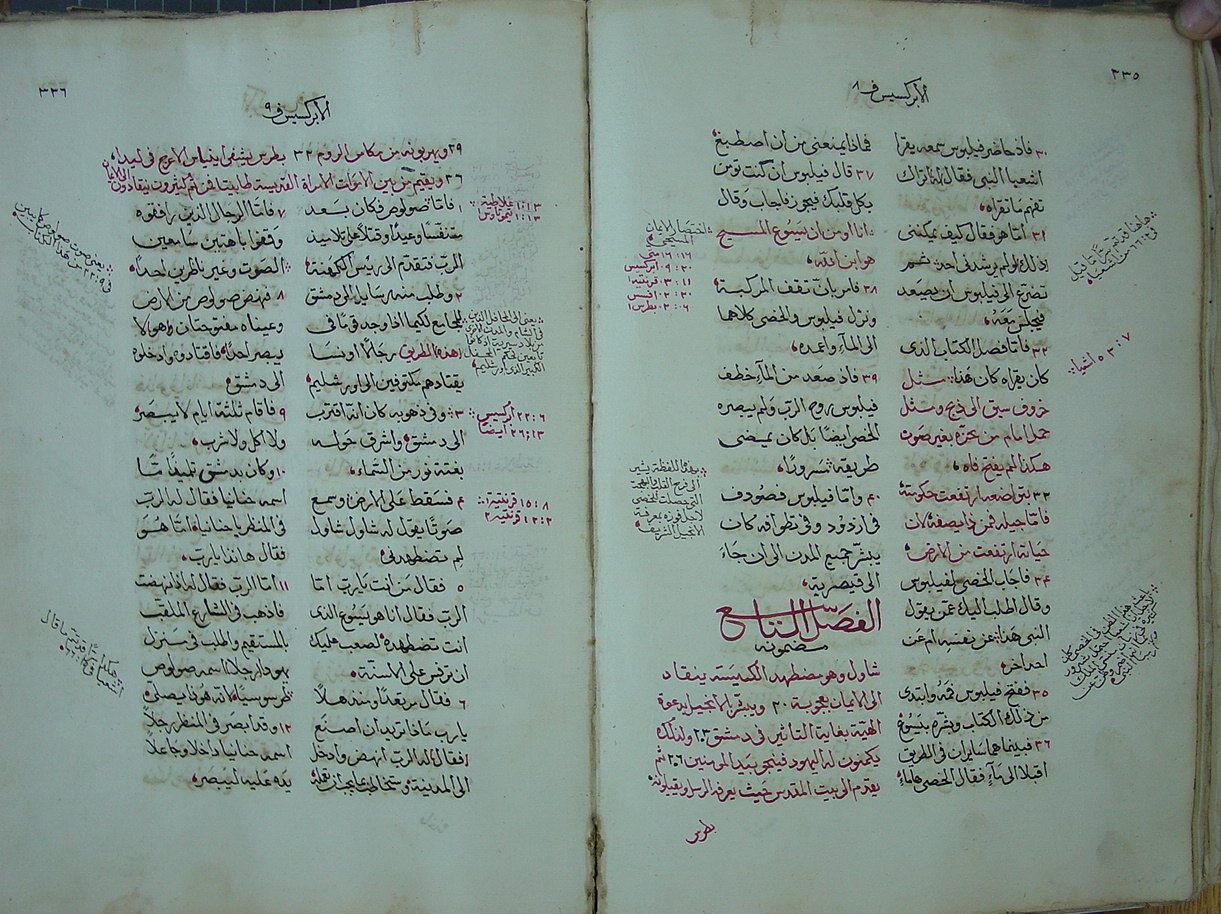 ٣٣٥
الأبركسيس ف ٨
٣٠ فاذ حاضر فيلبوس سمعه يقرا
اشعيا النبي فقال له اتراك
تفهم ما تقراه
٣١ اما هو فقال كيف يمكنني
ذلك ان لم يرشدني احد ثم
تضرع الى فيلبوس ان يصعد
فيجلس معه
٣٢ فاما فصل الكتاب الذي
كان يقراه كان هذا مثل
خروف سيق الى الذبح ومثل
حمل امام من يجزه بغير صوت
هكذا لم يفتح فاه
٣٣ بتواضعه ارتفعت حكومته
فاما جيله فمن ذا يصفه لان
حياته ارتفعت من الارض
٣٤ فاجاب الخصي لفيلبوس
وقال اطلب اليك عمن يقول
النبي هذا عن نفسه ام عن
احد اخر
٣٥ ففتح فيلبوس فمه وابتدى
من ذلك الكتاب وبشره بيسوع
٣٦ فبينما هما سايران في الطريق
اقبلا الى ماء فقال الخصي هاماء
فماذا يمنعني من ان اصطبغ
٣٧ قال فيلبوس ان كنت تومن
بكل قلبك فيجوز فاجاب وقال
انا اومن ان يسوع المسيح
هو ابن الله
٣٨ فامر بان تقف المركبة
ونزل فيلبوس والخصي كلاهما
الى الماء واعمده
٣٩ فاذ صعد من الماء خطف
فيلبوس روح الرب ولم يبصره
الخصي ايضا بل كان يمضي
طريقه مسرورا
٤٠ واما فيلبوس فصودف
في ازدود وفي تطوافه كان
يبشر جميع المدن الى ان جاء
الى قيصرية
الفصل التاسع
مضمونه
شاول وهو مضطهد الكنيسة ينقاد
الى الايمان بعجوبة ٢٠ ويبشر بالانجيل بدعوة
الهية بغاية التاثير في دمشق ٢٣ ولذلك
يكمنون له اليهود فينجو بيد المومنين ٢٦ ثم
يقدم الى بيت المقدس حيث يعرفه الرسل ويقبلونه
بطرس
٧ : ٥٣ اشيا
١٦ : ١٦ متى
٢٠ : ٩ ابركسيس
١١ : ٣ قرنتية ١
٢٠ : ٢ افسس
٦ : ٢ بطرس ١
٣٣٦
الأبركسيس ف ٩
٢٩ ويهربونه من مكامن الروم ٣٢ بطرس يشفي اينياس الاعرج في ليدا
٣٦ ويقيم من بين الاموات الامراة القديسة طابيتا فمن ثم كثيرون ينقادون الى الايمان
١ فاما صولوص فكان بعد
متنفسا وعيدا وقتلا على تلاميذ
الرب فتقدم الى ريس الكهنة
٢ وطلب منه رسايل الى دمشق
للمجامع لكيما اذا وجد قوما في
هذه الطريق رجالا او نسا
يقتادهم مكتوفين الى اورشليم
٣ وفي ذهوبه كان انه اقترب
الى دمشق واشرق حوله
بغتة نور من السماء
٤ فسقط على الارض وسمع
صوتا يقول له شاول شاول
لم تضطهدني
٥ فقال من انت يارب اما
الرب فقال انا هو يسوع الذي
انت تضطهده لصعب عليك
ان ترفس على الاسنة
٦ فقال مرتعدا ومنذهلا
يارب ماذا تريد ان اصنع
فقال له الرب انهض وادخل
الى المدينة وستخاطب بما يجب ان تفعله
٧ فاما الرجال الذين رافقوه
وقفوا باهتين سامعين
الصوت وغير ناظرين احدا
٨ فنهض صولوص من الارض
وعيناه مفتوحتان وهو لا
يبصر احدا فاقتادوه وادخلوه
الى دمشق
٩ فاقام ثلثة ايام لا يبصر
ولا اكل ولا شرب
١٠ وكان بدمشق تلميذا ما
اسمه حنانيا فقال له الرب
في المنظر يا حنانيا اما هو
فقال هانذا يارب
١١ اما الرب فقال له انهض
فاذهب في الشارع الملقب
بالمستقيم واطلب في منزل
يهودا رجلا اسمه صولوص
طرسوسيا لانه هوذا يصلي
١٢ وقد ابصر في المنظر رجلا
اسمه حنانيا داخلا وجاعلا
يده عليه ليبصر
١:١٣ غلاطية
١:١٣ تيموتاوس
٢٢:٦ ابركسيس
٢٦:١٣ ايضا
١٥:٨ قرنتية ١
١٢:٢ قرنتية ٢